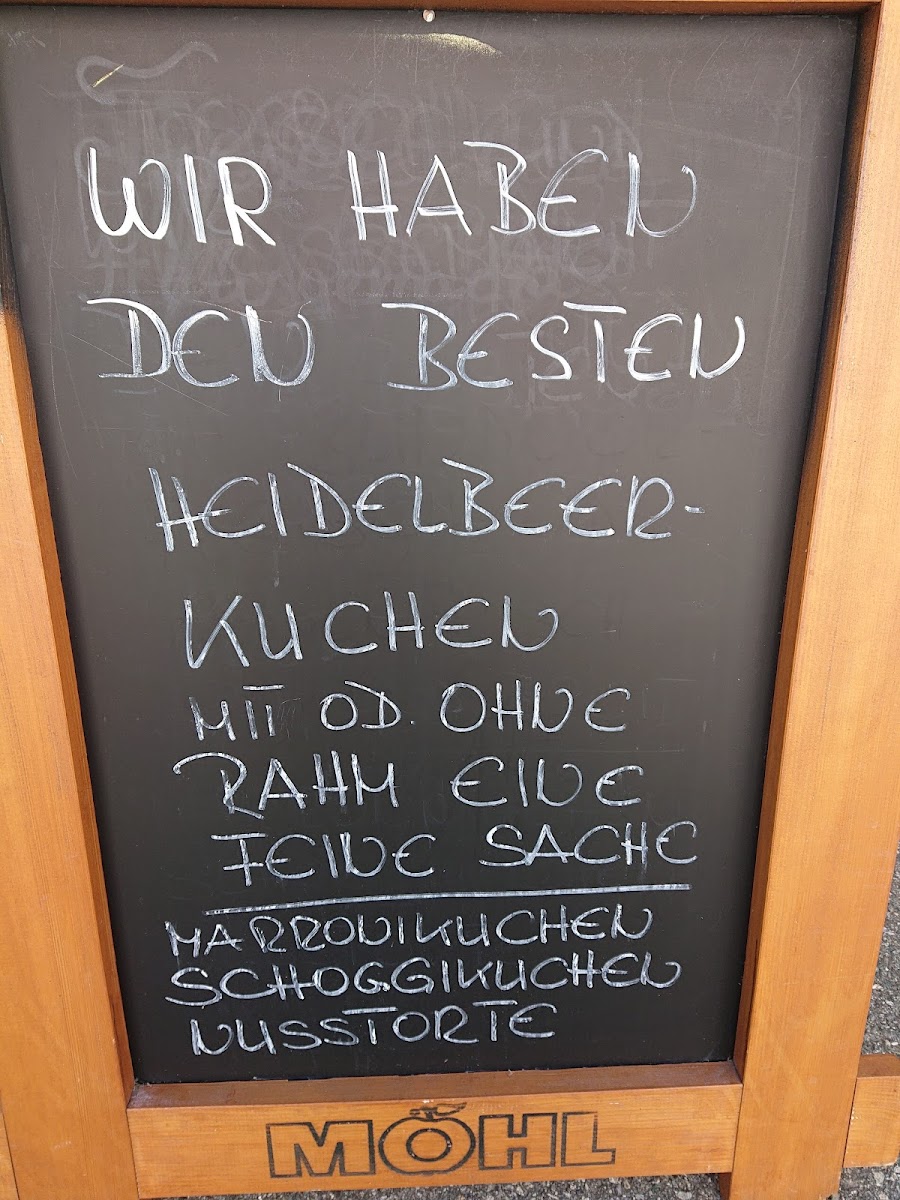 WIR HABEN
DEN BESTEN
HEIDELBEER-
KUCHEN
MIT OD. OHNE
RAHM EINE
FEINE SACHE
MARRONIKUCHEN
SCHOGGIKUCHEN
NUSSTORTE
MÖHL